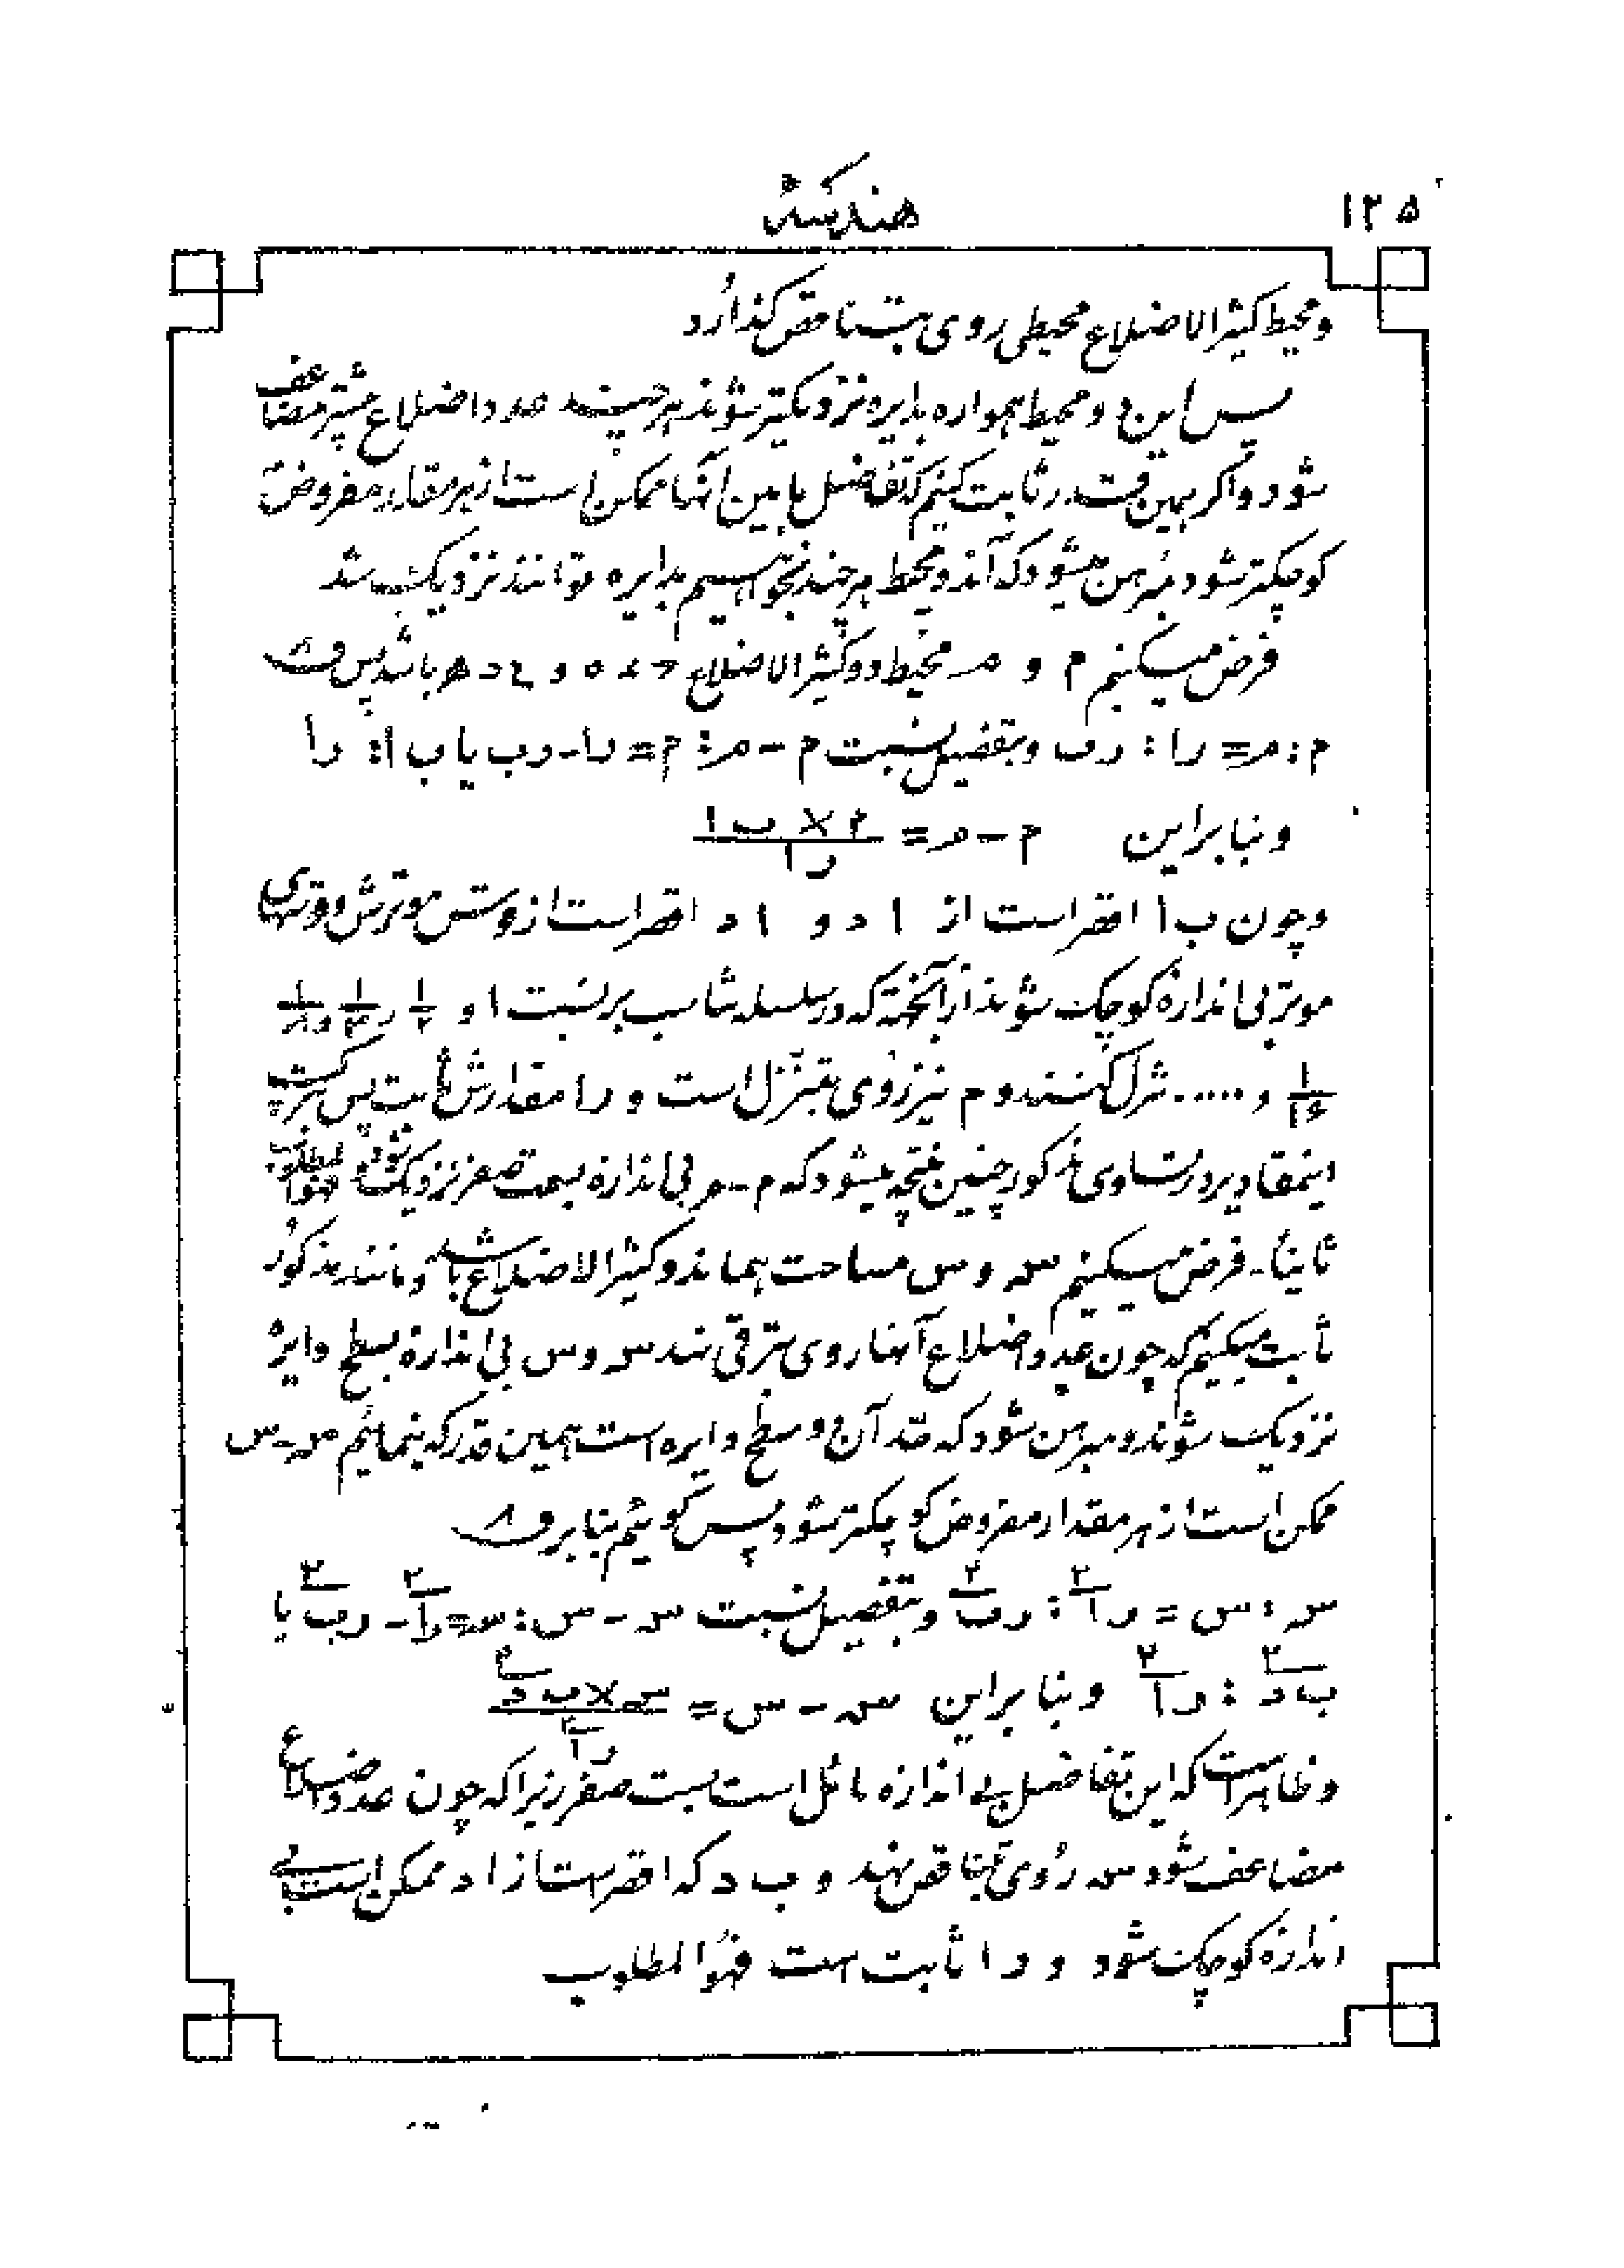 ۱۲۵
هندسه
و محیط کثیرالاضلاع محیطی روی بتناقص گذارد
پس این دو محیط همواره بدایره نزدیکتر شوند هر چند عدد اضلاع بیشتر مضاعف
شود و اگر بهمین قدر ثابت کنیم که تفاضل مابین آنها ممکن است از هر مقدار مفروض
کوچکتر شود مبرهن میشود که آندو محیط هر چند بخواهیم بدایره توانند نزدیک شد
فرض میکنیم م و مـ محیط دو کثیرالاضلاع و باشد پس
م : مـ = را : رب و بتفضیل نسبت م - مـ : م = را - رب یا ب ا : را
و بنابراین م - مـ = م × ب ا / را
و چون ب ا اقصر است از ا د و ا د اقصر است از قوسش موترش و قوسهای
موتر بی اندازه کوچک شوند از آنجهت که در سلسله تناسب بر نسبت ۱ و ۱/۲ و ۱/۴ و ۱/۸
۱/۱۶ و ..... تنزل کنند و م نیز روی بتنزل است و را مقدارش ثابت پس بترکیب
اینمقادیر در تساوی مذکور چنین نتیجه میشود که م - مـ بی اندازه بسمت صفر نزدیک شود فهوالمطلوب
ثانیاً - فرض میکنیم سـ و س مساحت همان دو کثیرالاضلاع باشد و مانند مذکور
ثابت میکنیم که چون عدد اضلاع آنها روی بترقی نهد سـ و س بی اندازه بسطح دایره
نزدیک شوند و مبرهن شود که حد آن دو سطح دایره است همین قدر که بنمائیم سـ - س
ممکن است از هر مقدار مفروض کوچکتر شود پس گوئیم بنابر ف ۸
سـ : س = را۲ : رب۲ و بتفضیل نسبت سـ - س : سـ = را۲ - رب۲ یا
ب د۲ : را۲ و بنابراین سـ - س = سـ × ب د۲ / را۲
و ظاهر است که این تفاضل بی اندازه مائل است بسمت صفر زیرا که چون عدد اضلاع
مضاعف شود سـ روی بتناقص نهد و ب د که اقصر است از ا د ممکن است بی
اندازه کوچک شود و را ثابت است فهوالمطلوب